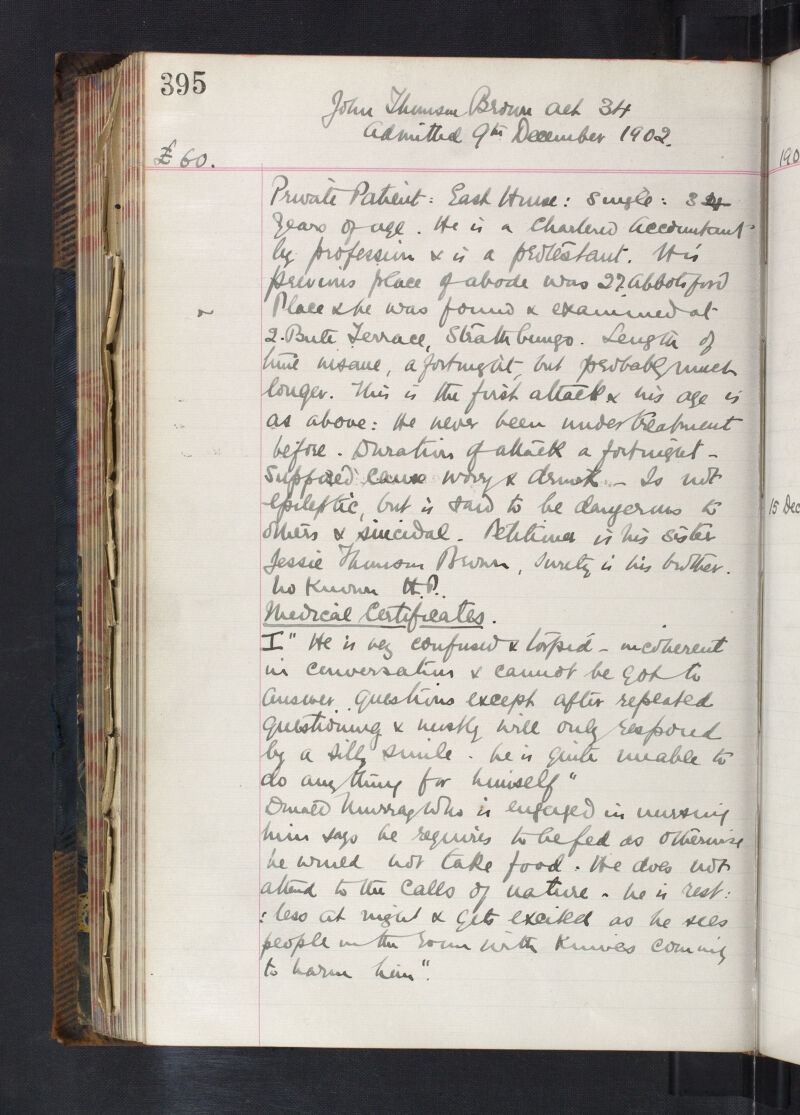 395
John Thomson Brown aet 34
Admitted 9th December 1902.
£60.
190
Private Patient: East House: Single: 34
years of age. He is a Chartered Accountant
by profession & is a protestant. His
previous place of abode was 27 Abbotsford
Place & he was found & examined at
2. Bute Terrace, Strathbungo. Length of
time insane, a fortnight, but probably much
longer. This is the first attack & his age is
as above: He never been under treatment
before. Duration of attack a fortnight -
Supposed cause worry & drink - Is not
epileptic, but is said to be dangerous to
15 Dec
others & suicidal. Petitioner is his sister
Jessie Thomson Brown, Surety is his brother.
No known H.P.
Medical Certificates.
I " He is very confused & torpid - incoherent
in conversation & cannot be got to
answer questions except after repeated
questioning & mostly will only respond
by a silly smile. he is quite unable to
do anything for himself"
Donald Murray who is engaged in nursing
him says he requires to be fed as otherwise
he would not take food. He does not
attend to the calls of nature. he is rest:
:less at night & gets excited as he sees
people in the room with knives coming
to harm him".